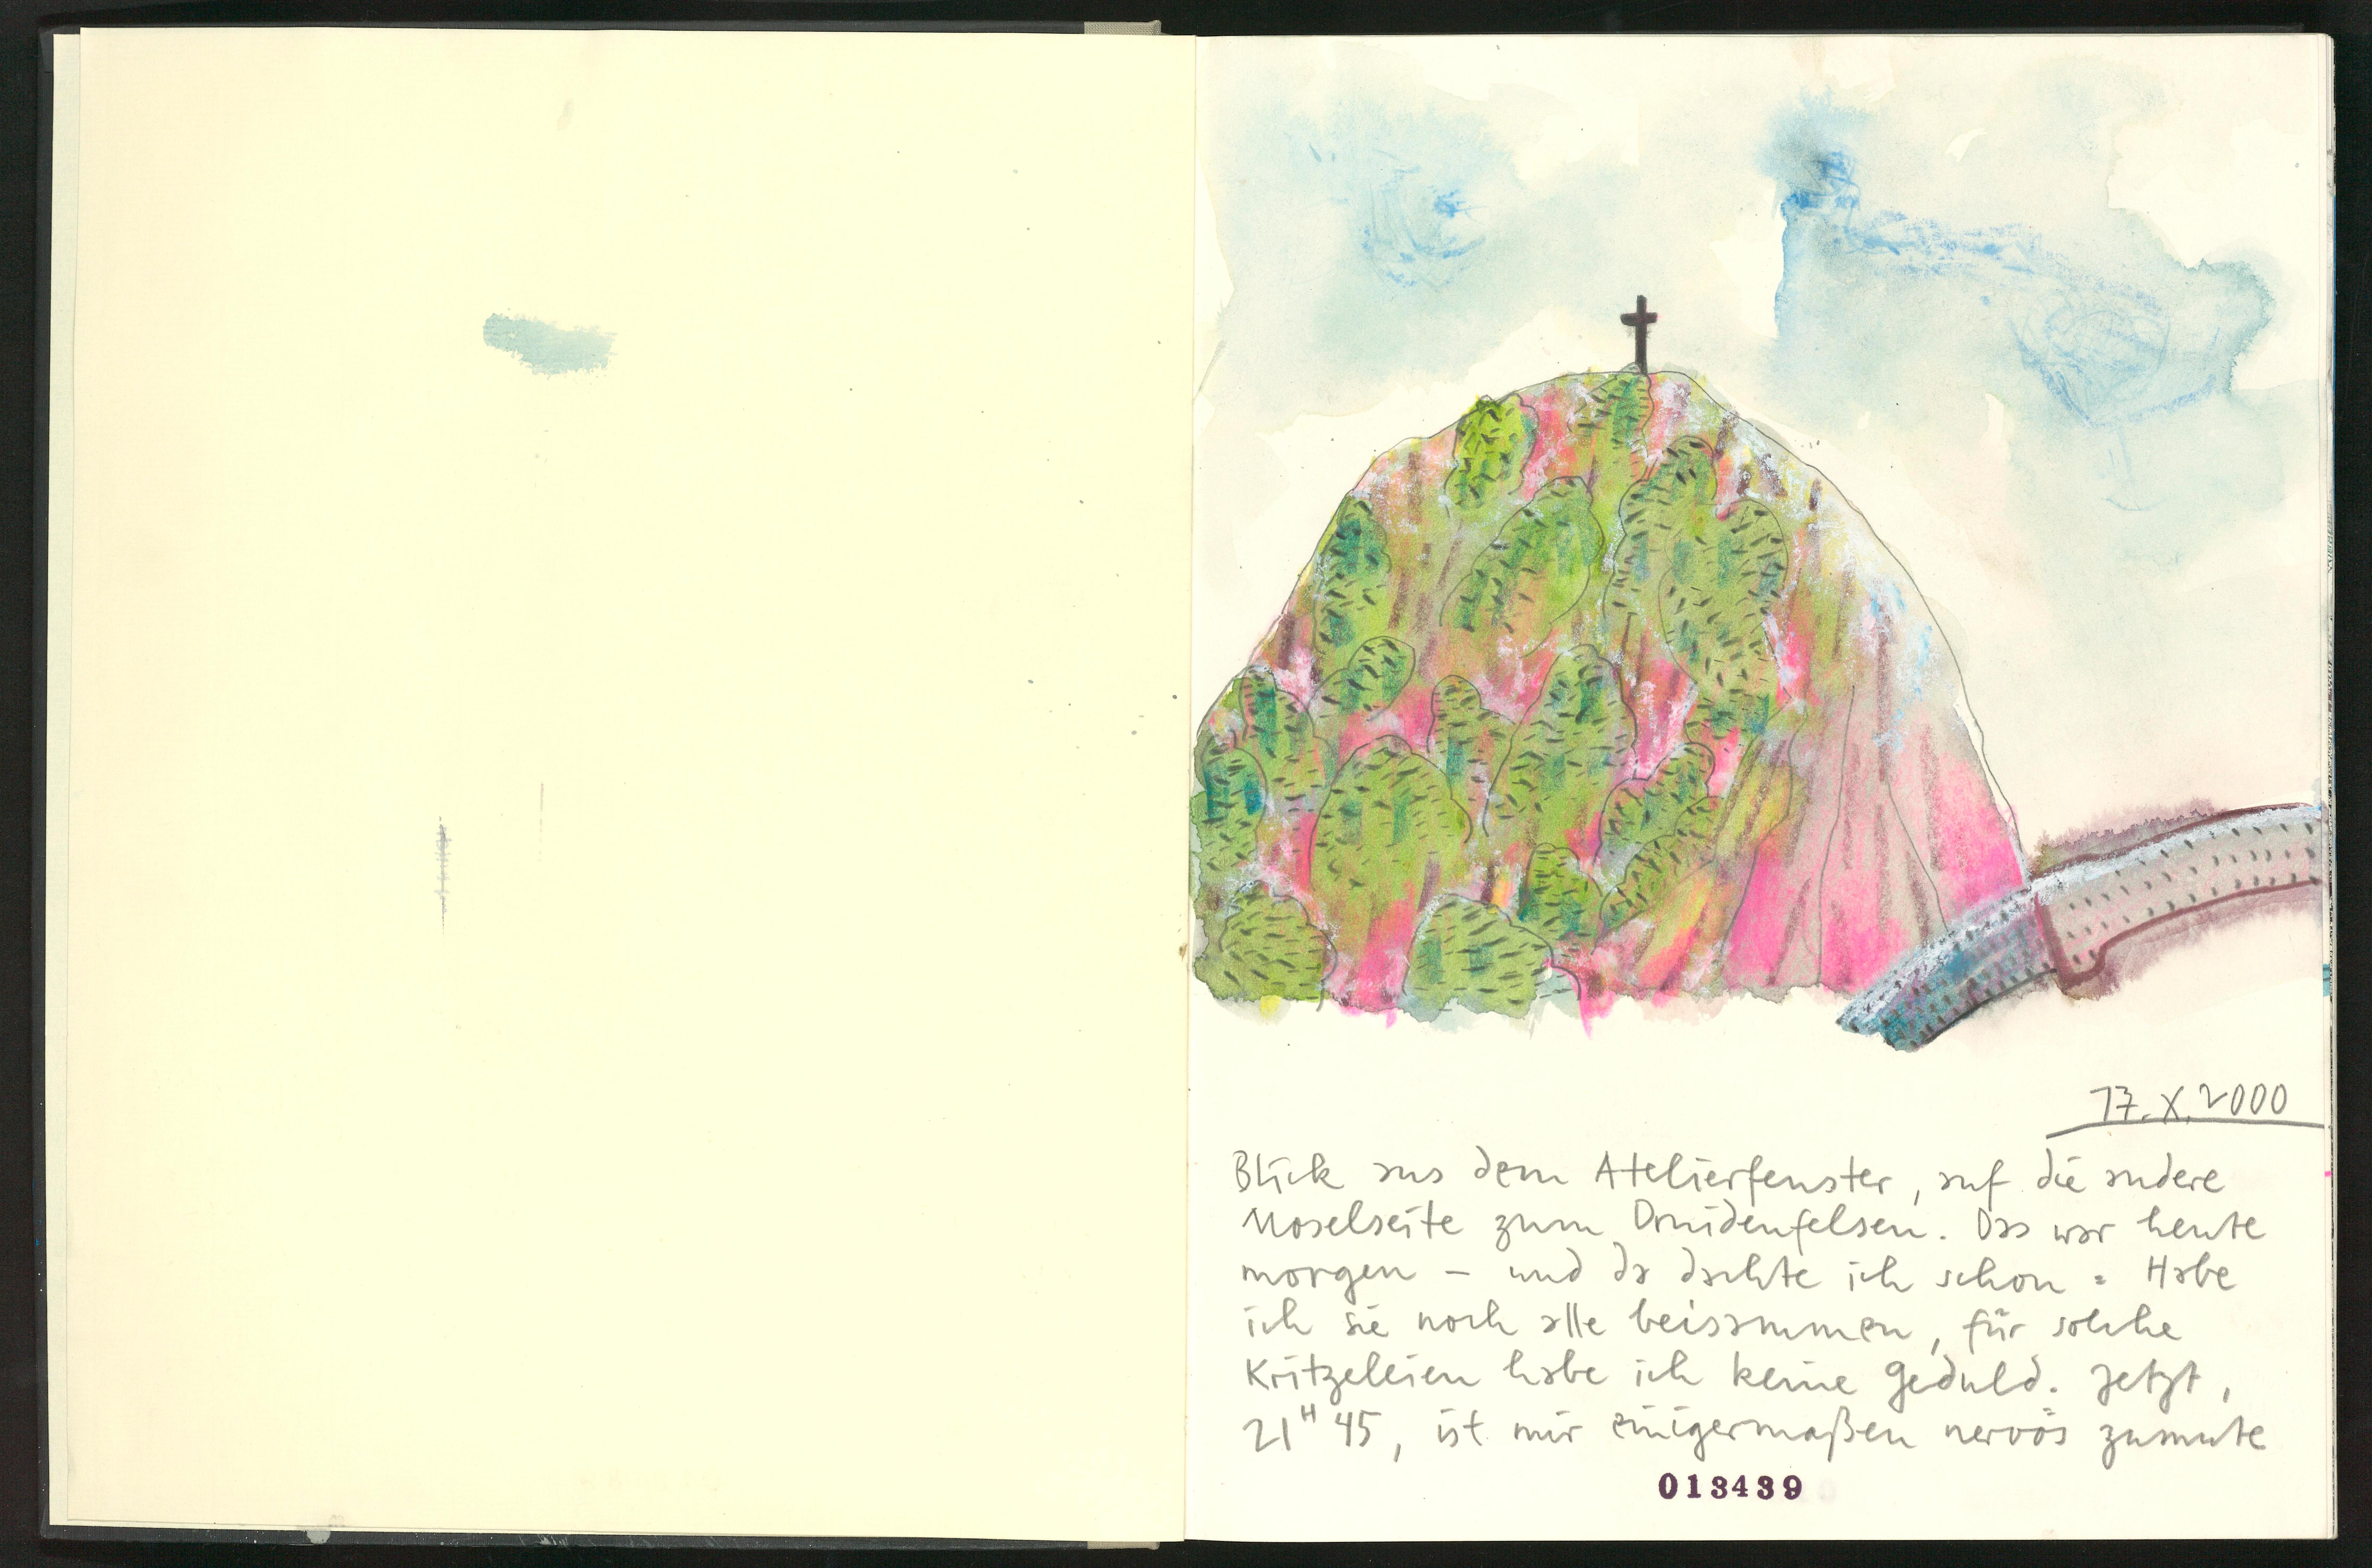 17.X.2000
Blick aus dem Atelierfenster, auf die andere
Moselseite zum Druidenfelsen. Das war heute
morgen – und da dachte ich schon : Habe
ich sie noch alle beisammen, für solche
Kritzeleien habe ich keine Geduld. Jetzt,
21ᴴ45, ist mir einigermaßen nervös zumute
013439